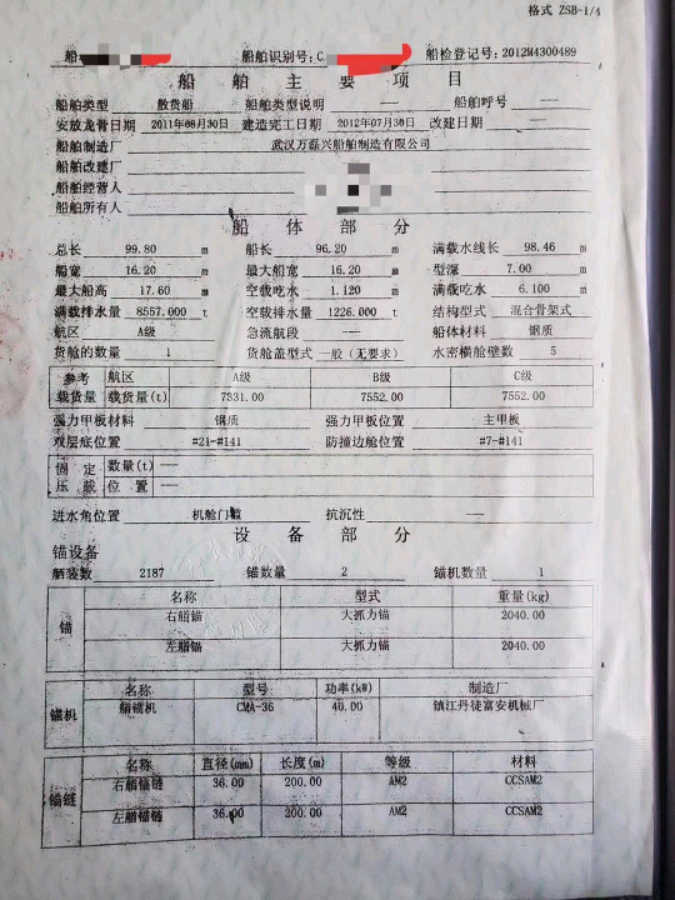 格式 ZSB-1/4
船 船舶识别号:C. 船检登记号:2012M4300489
船舶主要项目
船舶类型 散货船 船舶类型说明 —— 船舶呼号 ——
安放龙骨日期 2011年08月30日 建造完工日期 2012年07月30日 改建日期 ——
船舶制造厂 武汉万磊兴船舶制造有限公司
船舶改建厂
船舶经营人
船舶所有人
船体部分
总长 99.80 m 船长 96.20 m 满载水线长 98.46 m
船宽 16.20 m 最大船宽 16.20 m 型深 7.00 m
最大船高 17.60 m 空载吃水 1.120 m 满载吃水 6.100 m
满载排水量 8557.000 t 空载排水量 1226.000 t 结构型式 混合骨架式
航区 A级 急流航段 —— 船体材料 钢质
货舱的数量 1 货舱盖型式 一般（无要求） 水密横舱壁数 5
参考 航区 A级 B级 C级
载货量 载货量(t) 7331.00 7552.00 7552.00
强力甲板材料 钢质 强力甲板位置 主甲板
双层底位置 #21-#141 防撞边舱位置 #7-#141
固定 数量(t) ——
压载 位置 ——
进水角位置 机舱门槛 抗沉性 ——
设备部分
锚设备
舾装数 2187 锚数量 2 锚机数量 1
锚 名称 型式 重量(kg)
右艏锚 大抓力锚 2040.00
左艏锚 大抓力锚 2040.00
锚机 名称 型号 功率(kW) 制造厂
艏锚机 CMA-36 40.00 镇江丹徒富安机械厂
锚链 名称 直径(mm) 长度(m) 等级 材料
右艏锚链 36.00 200.00 AM2 CCSAM2
左艏锚链 36.00 200.00 AM2 CCSAM2